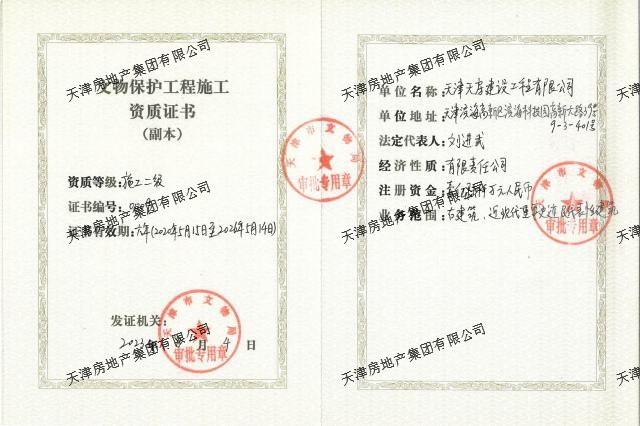 文物保护工程施工
资质证书
(副本)
资质等级: 施工二级
证书编号:
证书有效期: 六年(2020年5月15日至2026年5月14日)
发证机关:
2023年 月4日
单位名称: 天津天房建设工程有限公司
单位地址: 天津滨海高新区滨海科技园高新大道39号
9-3-401号
法定代表人: 刘进武
经济性质: 有限责任公司
注册资金: 万元人民币
业务范围: 古建筑、近现代重要史迹及代表性建筑
天津市文物局
审批专用章
天津市文物局
审批专用章
天津市文物局
审批专用章
天津房地产集团有限公司
天津房地产集团有限公司
天津房地产集团有限公司
天津房地产集团有限公司
天津房地产集团有限公司
天津房地产集团有限公司